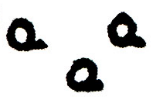 a a
a